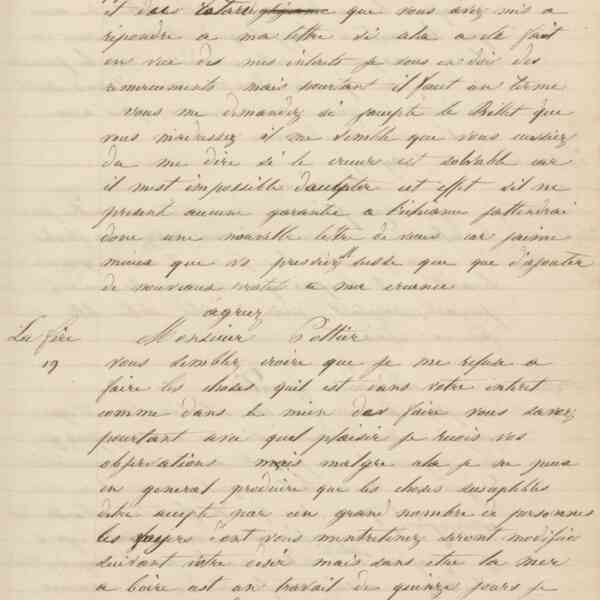 il des retard que vous avez mis a
repondre a ma lettre si cela a ete fait
en vue des mes interets je vous en dois des
remerciments mais pourtant il faut un terme
vous me demandez si j'accepte le Billet que
vous m'adressez il me semble que vous eussiez
du me dire si le creeur est solvable car
il m'est impossible d'accepter cet effet s'il ne
presente aucune garantie a l'echeance j'attendrai
donc une nouvelle lettre de vous car j'aime
mieux que vs pressiez Susse que que d'ajouter
de nouveaux a ma creance
agreez
La fère Monsieur Pottier
19 vous semblez croire que je me refuse a
faire les choses qu'il est dans votre interet
comme dans le mien des faire vous savez
pourtant avec quel plaisir je recois vos
observations mais malgre cela je ne puis
en general produire que les choses susceptibles
detre accepté par un grand nombre de personnes
les foyers dont vous m'entretenez seront modifiés
suivant votre desir mais sans etre la mer
a boire c'est un travail de quinze jours je